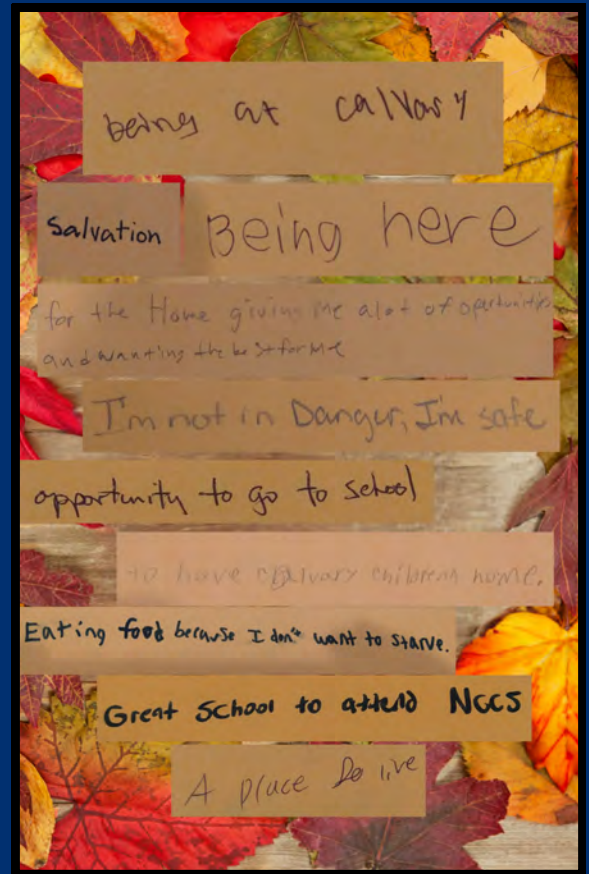 being at calvary
Salvation
Being here
for the Home giving me alot of oportunities
and wanting the best for me
I'm not in Danger, I'm safe
opportunity to go to school
to have calvary childrens home.
Eating food because I don't want to starve.
Great School to attend NGCS
A place to live